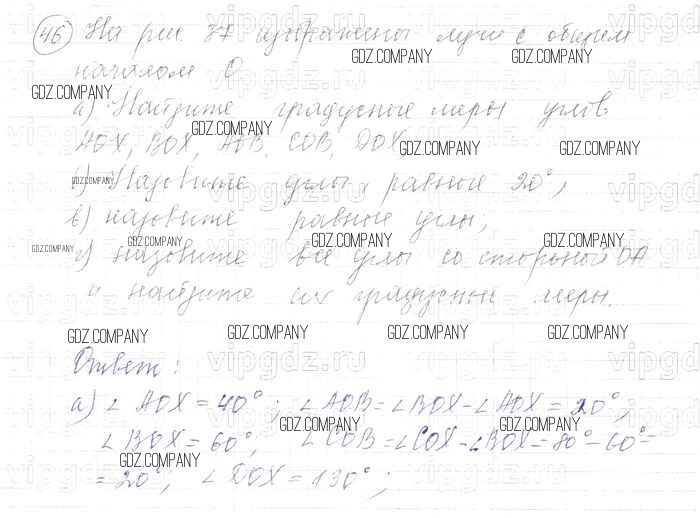 46 На рис 37 изображены лучи с общим
GDZ.COMPANY GDZ.COMPANY
началом О
GDZ.COMPANY
а) Найдите градусные меры углов
GDZ.COMPANY
AOX, BOX, AOB, COB, DOX,
GDZ.COMPANY GDZ.COMPANY
б) Назовите углы, равные 20°,
GDZ.COMPANY
в) назовите равные углы;
GDZ.COMPANY GDZ.COMPANY GDZ.COMPANY GDZ.COMPANY
г) назовите все углы со стороной OA
и найдите их градусные меры.
GDZ.COMPANY GDZ.COMPANY GDZ.COMPANY GDZ.COMPANY
vipgdz.ru
Ответ:
а) ∠ AOX = 40°; ∠ AOB = ∠ BOX - ∠ AOX = 20°,
GDZ.COMPANY GDZ.COMPANY
∠ BOX = 60°, ∠ COB = ∠ COX - ∠ BOX = 80° - 60° =
GDZ.COMPANY
= 20°; ∠ DOX = 130°;